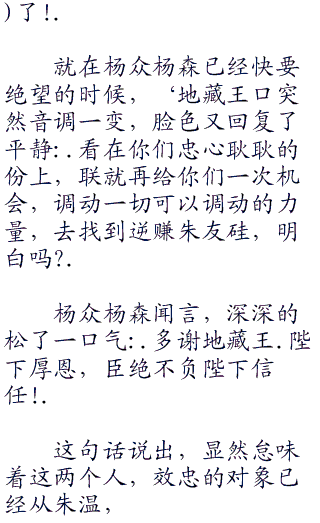 )了!.
就在杨众杨森已经快要
绝望的时候，‘地藏王口突
然音调一变，脸色又回复了
平静:.看在你们忠心耿耿的
份上，联就再给你们一次机
会，调动一切可以调动的力
量，去找到逆赚朱友硅，明
白吗?.
杨众杨森闻言，深深的
松了一口气:.多谢地藏王.陛
下厚恩，臣绝不负陛下信
任!.
这句话说出，显然怠味
着这两个人，效忠的对象已
经从朱温，